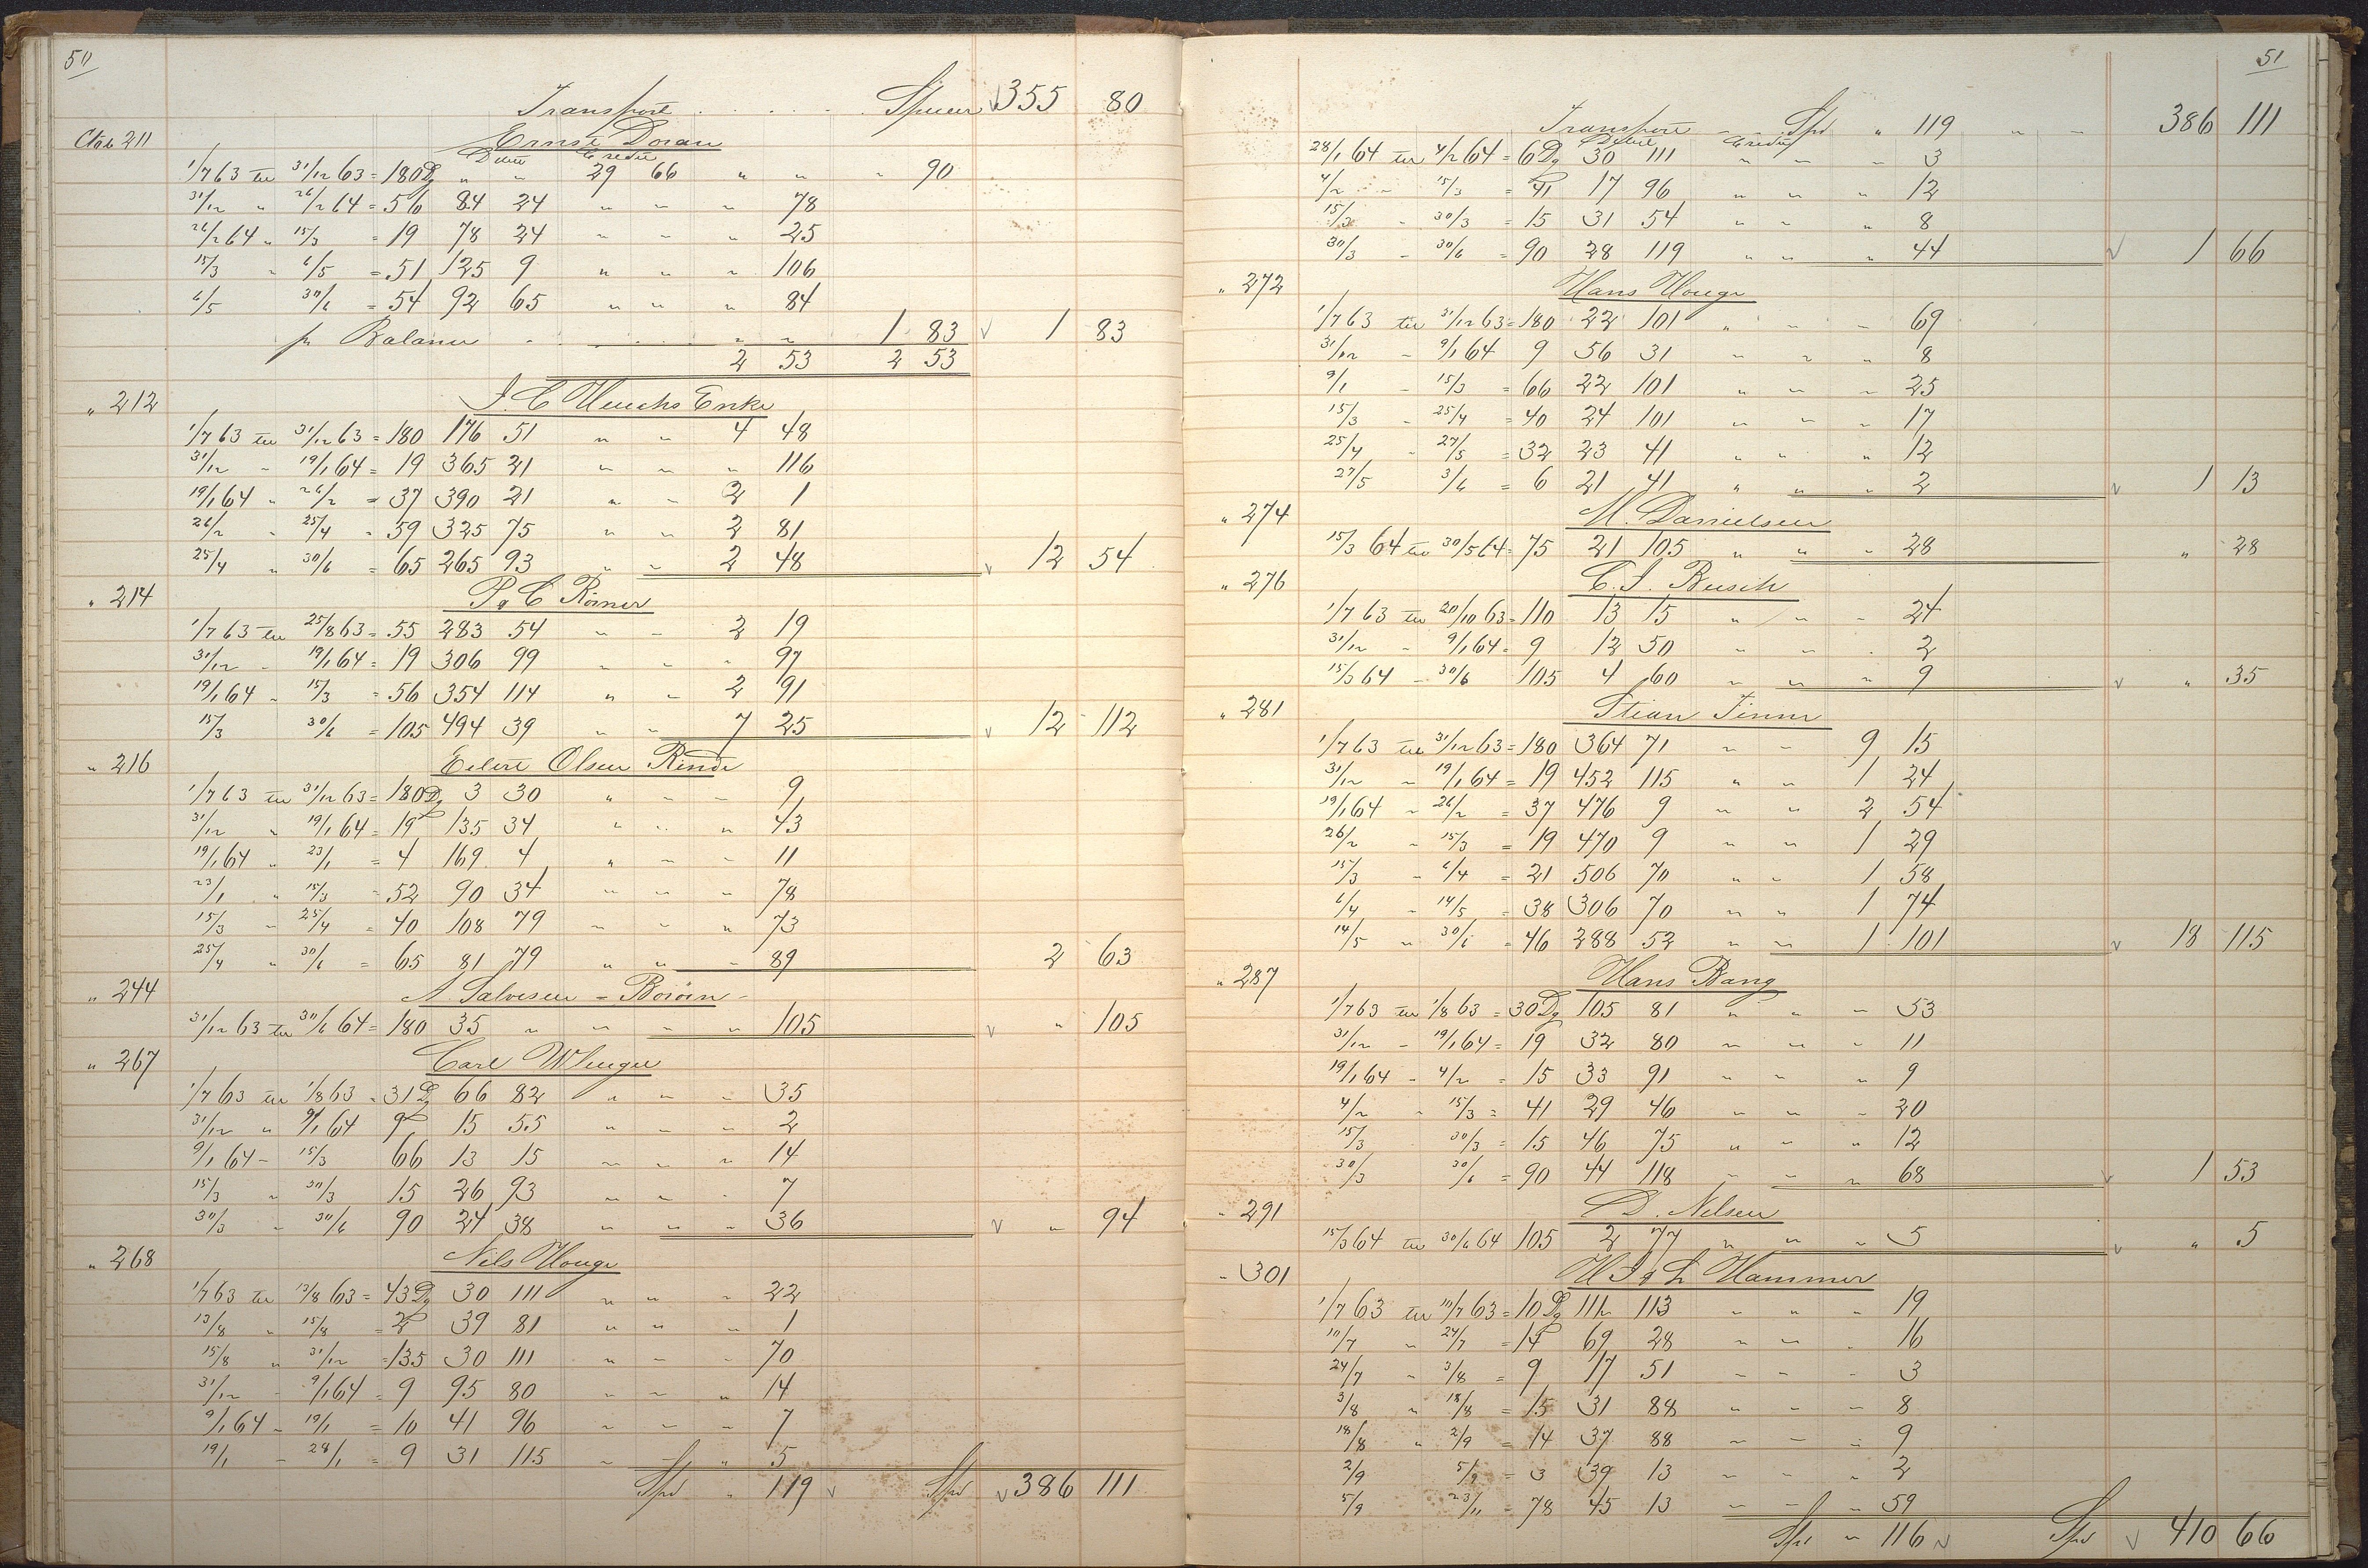 50
Transport . . . . . Specier 355 80
Cto 211 Ernst Doran
Debet Credit
1/7 63 til 31/12 63 = 180 Dg " " 29 66 " " " 90
31/12 " 26/2 64 = 56 84 24 " " " 78
26/2 64 " 15/3 = 19 78 24 " " " 25
15/3 " 6/5 = 51 125 9 " " " 106
6/5 30/6 = 54 92 65 " " " 84
pr Balance . . . " " 1 83 √ 1 83
2 53 2 53
" 212 J. C. Enke
1/7 63 til 31/12 63 = 180 176 51 " " 4 48
31/12 " 19/1 64 = 19 365 21 " " " 116
19/1 64 " 26/2 = 37 390 21 " " 2 1
26/2 " 25/4 = 59 325 75 " " 2 81
25/4 " 30/6 = 65 265 93 " " 2 48 √ 12 54
" 214 P. C. Römer
1/7 63 til 25/8 63 = 55 283 54 " " 2 19
31/12 " 19/1 64 = 19 306 99 " " " 97
19/1 64 " 15/3 = 56 354 114 " " 2 91
15/3 30/6 = 105 494 39 " " 7 25 √ 12 112
" 216 Eilert Olsen Rinde
1/7 63 til 31/12 63 = 180 Dg 3 30 " " " 9
31/12 " 19/1 64 = 19 135 34 " " " 43
19/1 64 " 23/1 = 4 169 4 " " " 11
23/1 " 15/3 = 52 90 34 " " " 78
15/3 " 25/4 = 40 108 79 " " " 73
25/4 " 30/6 = 65 81 79 " " " 89 2 63
" 244 A. Salvesen = Boröen
31/12 63 til 30/6 64 = 180 35 " " " " 105 √ " 105
" 267 Carl
1/7 63 til 1/8 63 = 31 Dg 66 82 " " " 35
31/12 " 9/1 64 9 15 55 " " " 2
9/1 64 " 15/3 66 13 15 " " " 14
15/3 " 30/3 15 26 93 " " " 7
30/3 " 30/6 90 24 38 " " " 36 √ " 94
" 268 Nels Houge
1/7 63 til 13/8 63 = 43 Dg 30 111 " " " 22
13/8 " 15/8 = 2 39 81 " " " 1
15/8 " 31/12 = 135 30 111 " " " 70
31/12 " 9/1 64 = 9 95 80 " " " 14
9/1 64 " 19/1 = 10 41 96 " " " 7
19/1 " 28/1 = 9 31 115 " " " 5
Spd " 119 √ Spd √ 386 111
51
Transport " " Spd " 119 " " 386 111
Debet Credit
28/1 64 til 4/2 64 = 6 Dg 30 111 " " " 3
4/2 " 15/3 = 41 17 96 " " " 12
15/3 " 30/3 = 15 31 54 " " " 8
30/3 " 30/6 = 90 28 119 " " " 44 √ 1 66
" 272 Hans Houge
1/7 63 til 31/12 63 = 180 22 101 " " " 69
31/12 " 9/1 64 9 56 31 " " " 8
9/1 " 15/3 = 66 22 101 " " " 25
15/3 " 25/4 = 40 24 101 " " " 17
25/4 " 27/5 = 32 23 41 " " " 12
27/5 3/6 = 6 21 41 " " " 2 √ 1 13
" 274 M. Danielsen
15/3 64 til 30/5 64 = 75 21 105 " " " 28 " 28
" 276 C. J. Busch
1/7 63 til 20/10 63 = 110 13 15 " " " 24
31/12 " 9/1 64 = 9 12 50 " " " 2
15/3 64 " 30/6 105 4 60 " " " 9 √ " 35
" 281 Stian Finne
1/7 63 til 31/12 63 = 180 364 71 " " 9 15
31/12 " 19/1 64 = 19 452 115 " " 1 24
19/1 64 " 26/2 = 37 476 9 " " 2 54
26/2 " 15/3 = 19 470 9 " " 1 29
15/3 " 6/4 = 21 506 70 " " 1 58
6/4 " 14/5 = 38 306 70 " " 1 74
14/5 " 30/6 = 46 288 52 " " 1 101 √ 18 115
" 287 Hans Bang
1/7 63 til 1/8 63 = 30 Dg 105 81 " " " 53
31/12 " 19/1 64 = 19 32 80 " " " 11
19/1 64 " 4/2 = 15 33 91 " " " 9
4/2 " 15/3 = 41 29 46 " " " 20
15/3 30/3 = 15 46 75 " " " 12
30/3 30/6 = 90 44 118 " " " 68 √ 1 53
" 291 D. Nelsen
15/3 64 til 30/6 64 105 2 77 " " " 5 √ " 5
" 301 H J & L Hammer
1/7 63 til 10/7 63 = 10 Dg 111 113 " " " 19
10/7 " 24/7 = 14 69 28 " " " 16
24/7 " 3/8 = 9 17 51 " " " 3
3/8 " 18/8 = 15 31 88 " " " 8
18/8 " 2/9 = 14 37 88 " " " 9
2/9 5/9 = 3 39 13 " " " 2
5/9 23/11 = 78 45 13 " " " 59
Spd " 116 √ Spd √ 410 66